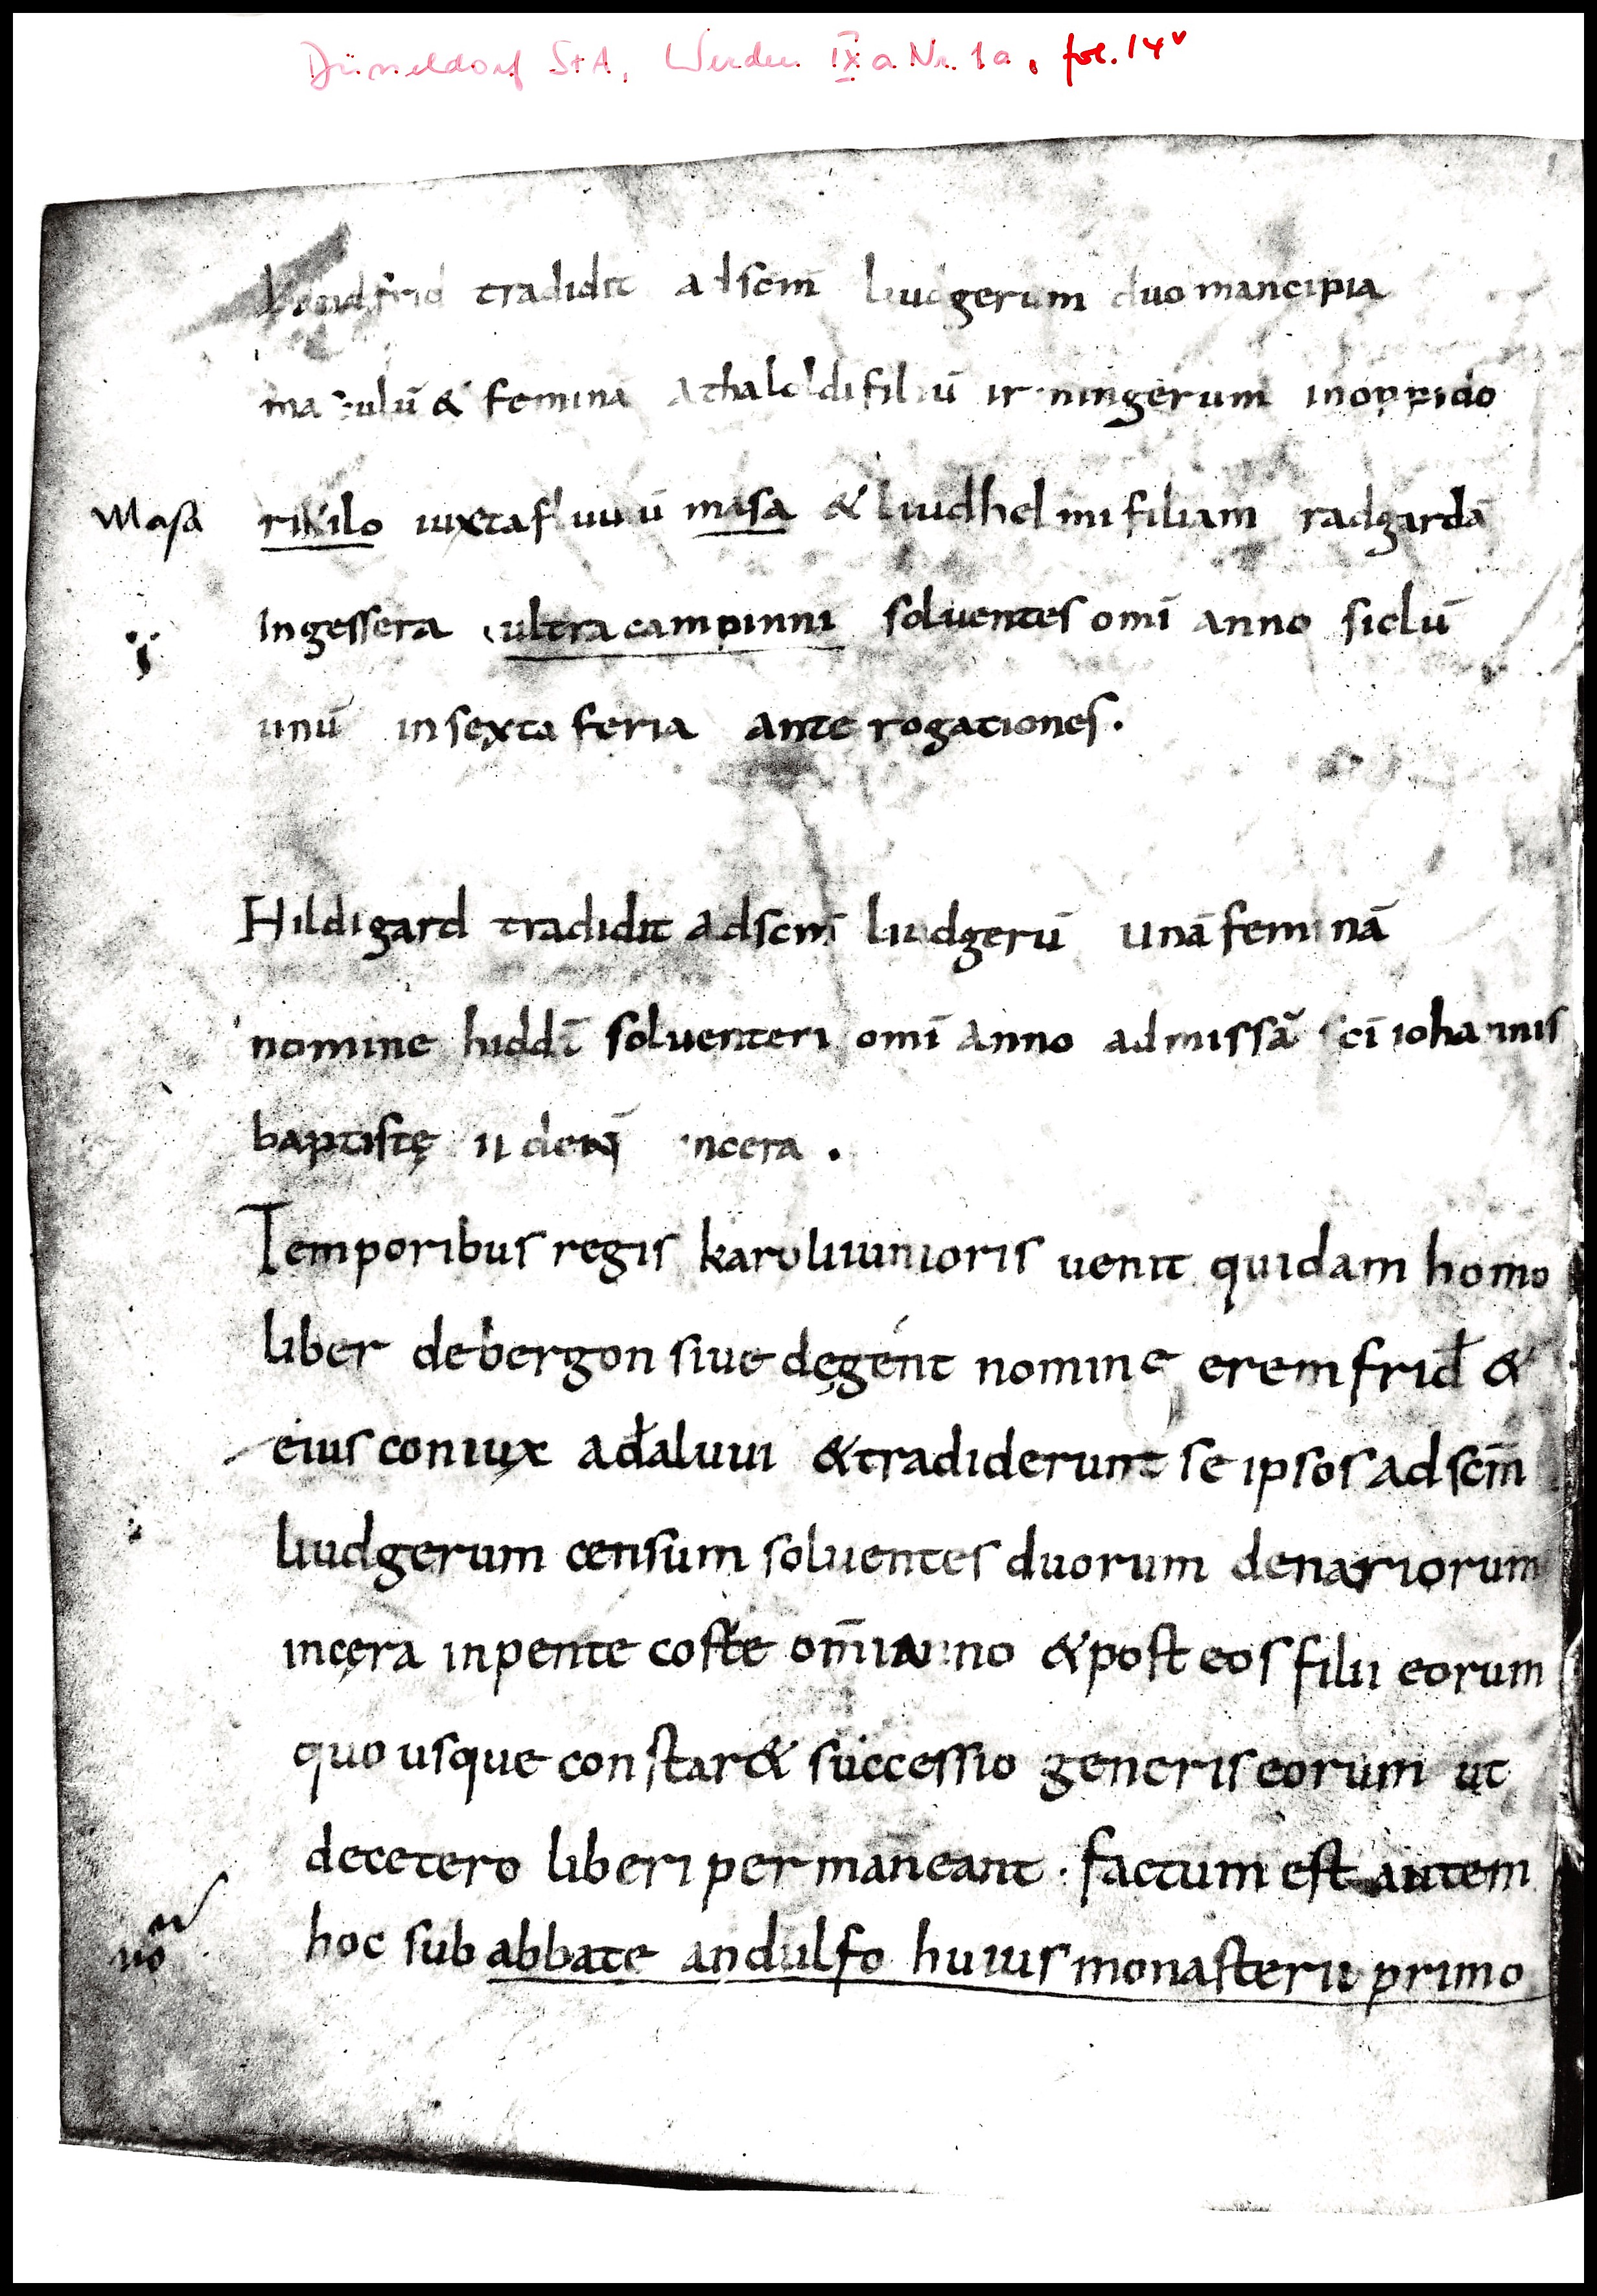 Düsseldorf StA, Werden IX a Nr. 1a, fol. 14v
tradidit ad scm̄ liudgerum duo mancipia
masculū & femina athaloldi filiū irmingerum in oppido
Masa
rikilo iuxta fluuiū masa & liudhelmi filiam radgardā
in gessera ultra campinni soluentes omī anno siclū
unū in sexta feria ante rogationes.
Hildigard tradidit ad scm̄ liudgerū unā feminā
nomine hiddī soluenteri omī anno ad missā scī iohannis
baptistę ii den̄ in cera.
Temporibus regis karoli iunioris uenit quidam homo
liber de bergon siue dęgent nomine eremfrid &
eius coniux adaluui & tradiderunt se ipsos ad scm̄
liudgerum censum soluentes duorum denariorum
in cęra in pente coste om̄i anno & post eos filii eorum
quo usque constar& successio generis eorum ut
decetero liberi permaneant. factum est autem
hoc sub abbate andulfo huius monasterii primo